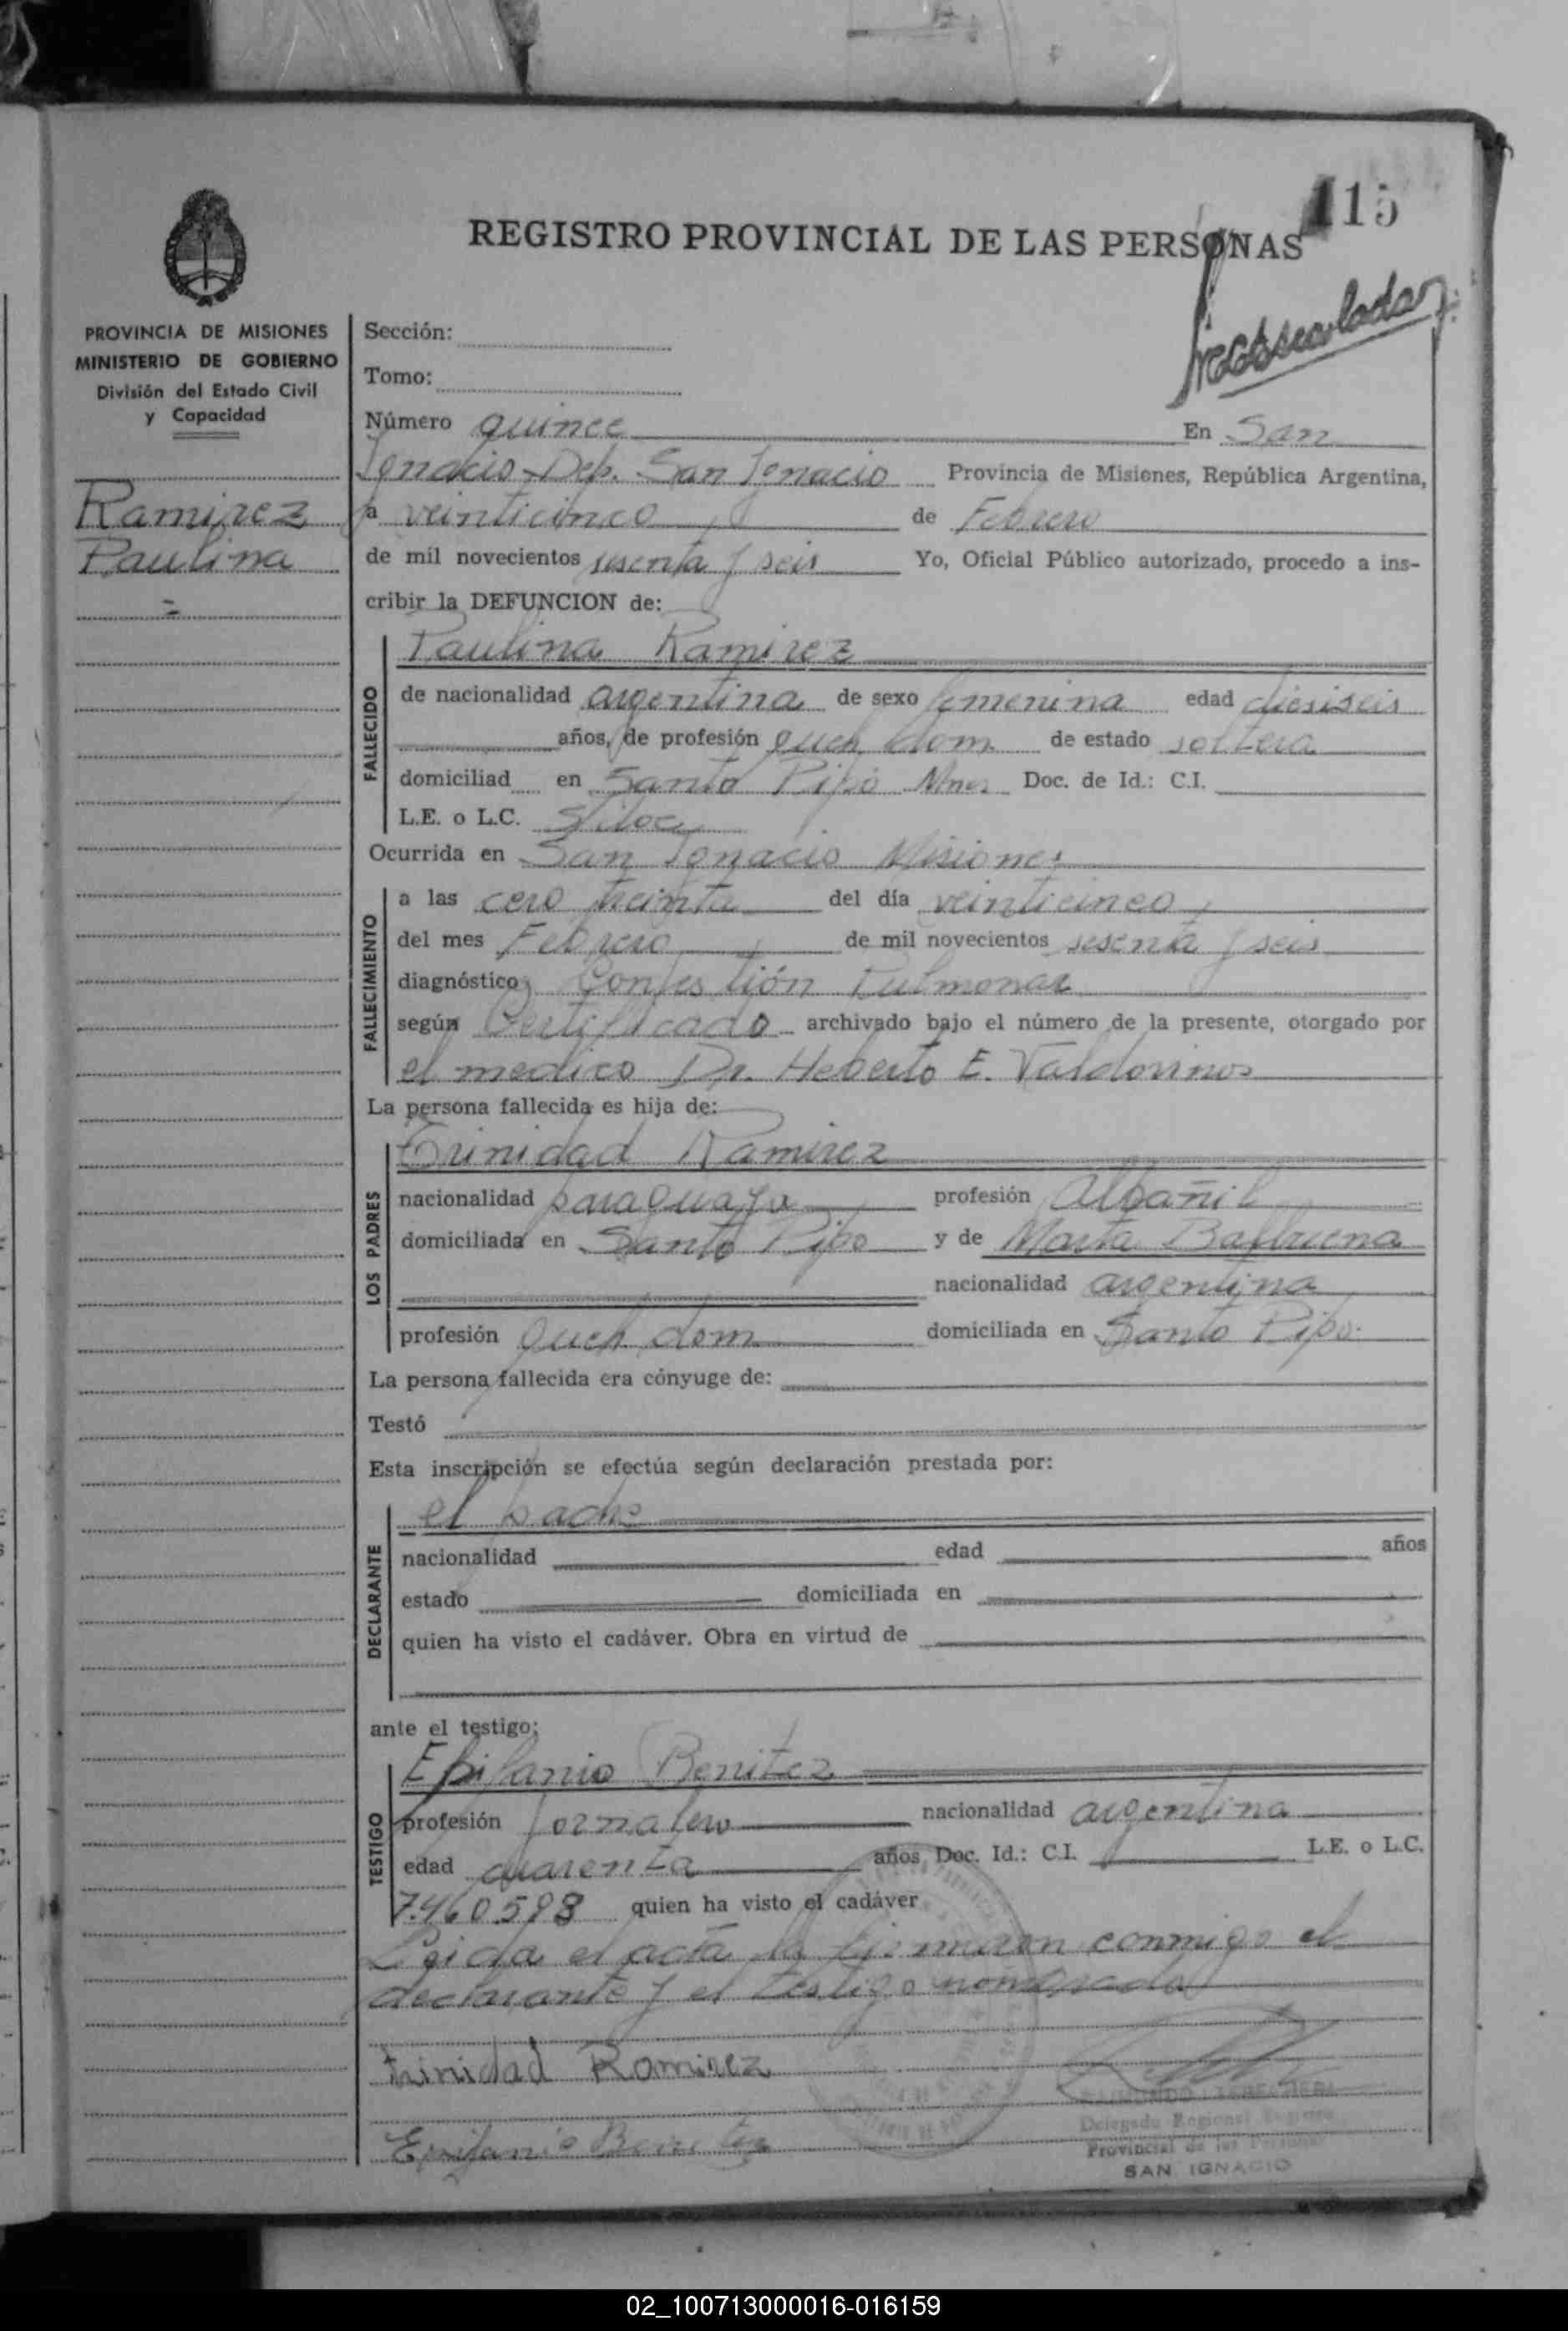 115
REGISTRO PROVINCIAL DE LAS PERSONAS
PROVINCIA DE MISIONES
MINISTERIO DE GOBIERNO
División del Estado Civil
y Capacidad
Ramirez
Paulina
Sección:
Tomo:
Número quince En San
Ignacio Dep. San Ignacio Provincia de Misiones, República Argentina,
a veinticinco de Febrero
de mil novecientos sesenta y seis Yo, Oficial Público autorizado, procedo a ins-
cribir la DEFUNCION de:
FALLECIDO
Paulina Ramirez
de nacionalidad argentina de sexo femenina edad diesiseis
años, de profesión queh dom de estado soltera
domiciliad en Santo Pipó Mnes Doc. de Id.: C.I.
L.E. o L.C.
Ocurrida en San Ignacio Misiones
FALLECIMIENTO
a las cero treinta del día veinticinco
del mes Febrero de mil novecientos sesenta y seis
diagnóstico Congestión Pulmonar
según Certificado archivado bajo el número de la presente, otorgado por
el medico Dr. Heberto E. Valdovinos
La persona fallecida es hija de:
LOS PADRES
Trinidad Ramirez
nacionalidad paraguaya profesión Albañil
domiciliada en Santo Pipo y de Marta
nacionalidad argentina
profesión queh dom domiciliada en Santo Pipo.
La persona fallecida era cónyuge de:
Testó
Esta inscripción se efectúa según declaración prestada por:
DECLARANTE
el padre
nacionalidad edad años
estado domiciliada en
quien ha visto el cadáver. Obra en virtud de
ante el testigo:
TESTIGO
Epifanio Benitez
profesión Jornalero nacionalidad argentina
edad quarenta años Doc. Id.: C.I. L.E. o L.C.
7.460.598 quien ha visto el cadáver
Leida el acta la firmaron conmigo el
declarante y el testigo nombrado
trinidad Ramirez
Epifanio Benitez
Delegado Regional Registro
Provincial de las Personas
SAN IGNACIO
02_100713000016-016159